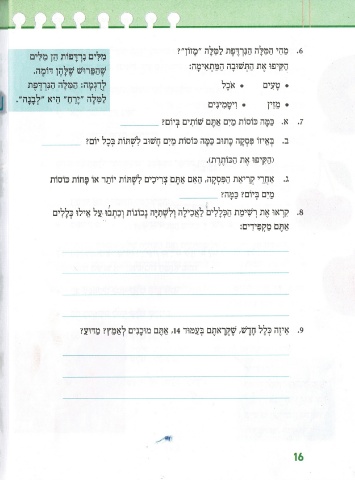 6. מַהִי הַמִּלָּה הַנִּרְדֶּפֶת לַמִּלָּה "מָזוֹן"?
הַקִּיפוּ אֶת הַתְּשׁוּבָה הַמַּתְאִימָה:
• טָעִים • אֹכֶל
• מֵזִין • וִיטָמִינִים
מִלִּים נִרְדָּפוֹת הֵן מִלִּים
שֶׁהַפֵּרוּשׁ שֶׁלָּהֶן דּוֹמֶה.
לְדֻגְמָה: הַמִּלָּה הַנִּרְדֶּפֶת
לַמִּלָּה "יָרֵחַ" הִיא "לְבָנָה".
7. א. כַּמָּה כּוֹסוֹת מַיִם אַתֶּם שׁוֹתִים בְּיוֹם?
ב. בְּאֵיזוֹ פִּסְקָה כָּתוּב כַּמָּה כּוֹסוֹת מַיִם חָשׁוּב לִשְׁתּוֹת בְּכָל יוֹם?
(הַקִּיפוּ אֶת הַכּוֹתֶרֶת).
ג. אַחֲרֵי קְרִיאַת הַפִּסְקָה, הַאִם אַתֶּם צְרִיכִים לִשְׁתּוֹת יוֹתֵר אוֹ פָּחוֹת כּוֹסוֹת
מַיִם בְּיוֹם? כַּמָּה?
8. קִרְאוּ אֶת רְשִׁימַת הַכְּלָלִים לַאֲכִילָה וְלִשְׁתִיָּה נְכוֹנוֹת וְכִתְבוּ עַל אֵילוּ כְּלָלִים
אַתֶּם מַקְפִּידִים:
9. אֵיזֶה כְּלָל חָדָשׁ, שֶׁקְּרָאתֶם בְּעַמּוּד 14, אַתֶּם מוּכָנִים לְאַמֵּץ? מַדּוּעַ?
16